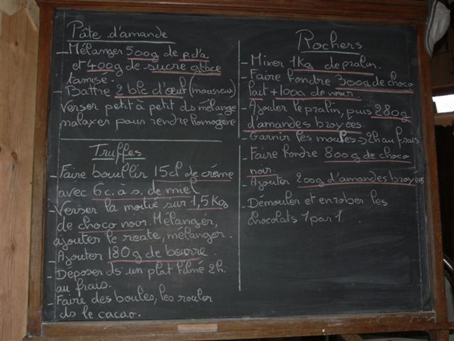 Pâte d'amande
- Mélanger 500g de p.d'a
et 400g de sucre glace
tamisé.
- Battre 2 blc d'œuf (mousseux)
Verser petit à petit ds mélange
malaxer pour rendre homogène
Truffes
- Faire bouillir 15cl de crème
avec 6 c. à s. de miel
- Verser la moitié sur 1,5 Kg
de choco noir. Mélanger,
ajouter le reste, mélanger.
- Ajouter 180g de beurre
- Déposer ds un plat filmé 2h
au frais.
- Faire des boules, les rouler
ds le cacao.
Rochers
- Mixer 1Kg de pralin.
- Faire fondre 300g de choco
lait + 100g de noir.
- Ajouter le pralin, puis 280g
d'amandes broyées
- Garnir les moules → 2h au frais
- Faire fondre 800g de choco
noir.
- Ajouter 200g d'amandes broyées
- Démouler et enrober les
chocolats 1 par 1.